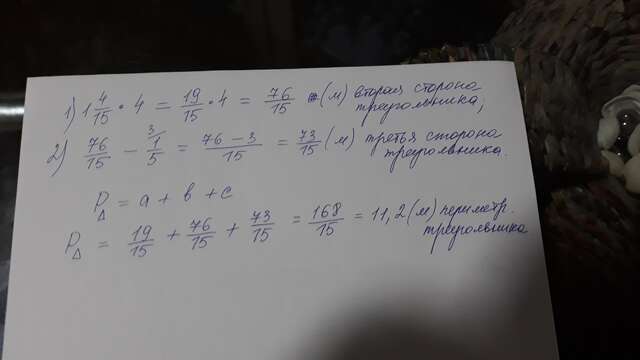 1) 1 4/15 • 4 = 19/15 • 4 = 76/15 (м) вторая сторона треугольника;
2) 76/15 - 1/5 ³ = 76 - 3/15 = 73/15 (м) третья сторона треугольника.
P△ = a + b + c
P△ = 19/15 + 76/15 + 73/15 = 168/15 = 11,2 (м) периметр. треугольника